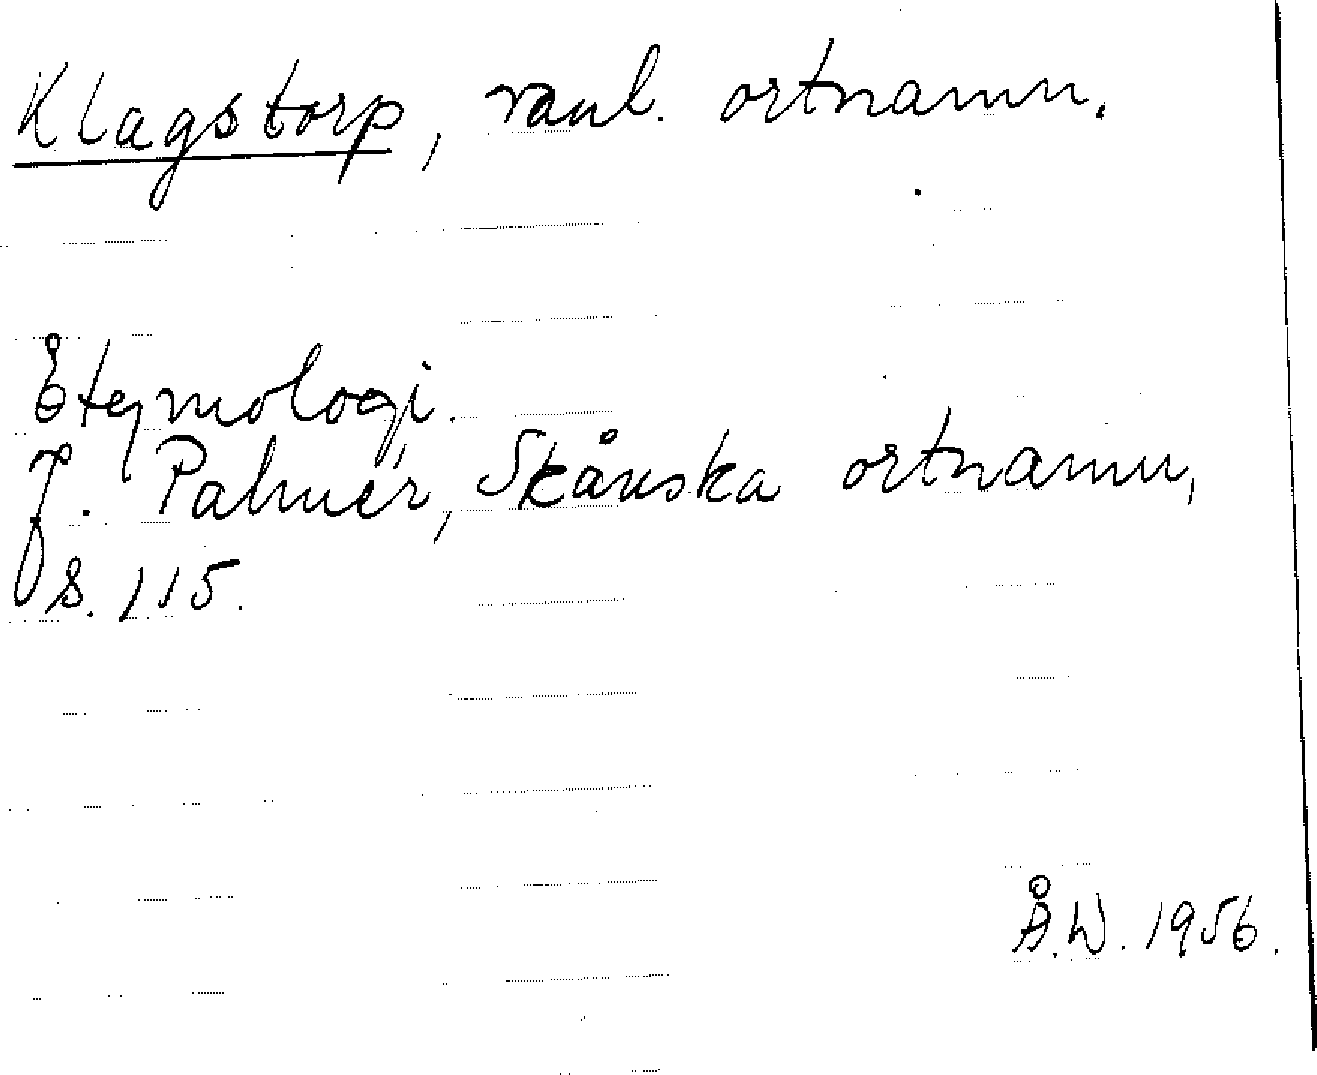 Klagstorp, vanl. ortnamn.
Etymologi.
J. Palmér, Skånska ortnamn,
s. 115.
Å.W. 1956.